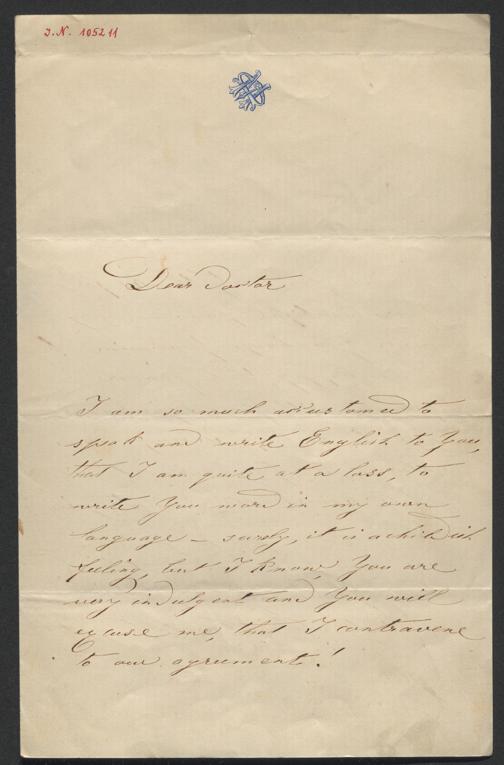 I. N. 105211
Dear Doctor
I am so much accustomed to
speak and write English to You,
that I am quite at a loss, to
write You more in my own
language – surely, it is a childish
feeling, but I know, You are
very indulgent and You will
excuse me, that I contravene
to our agrument!